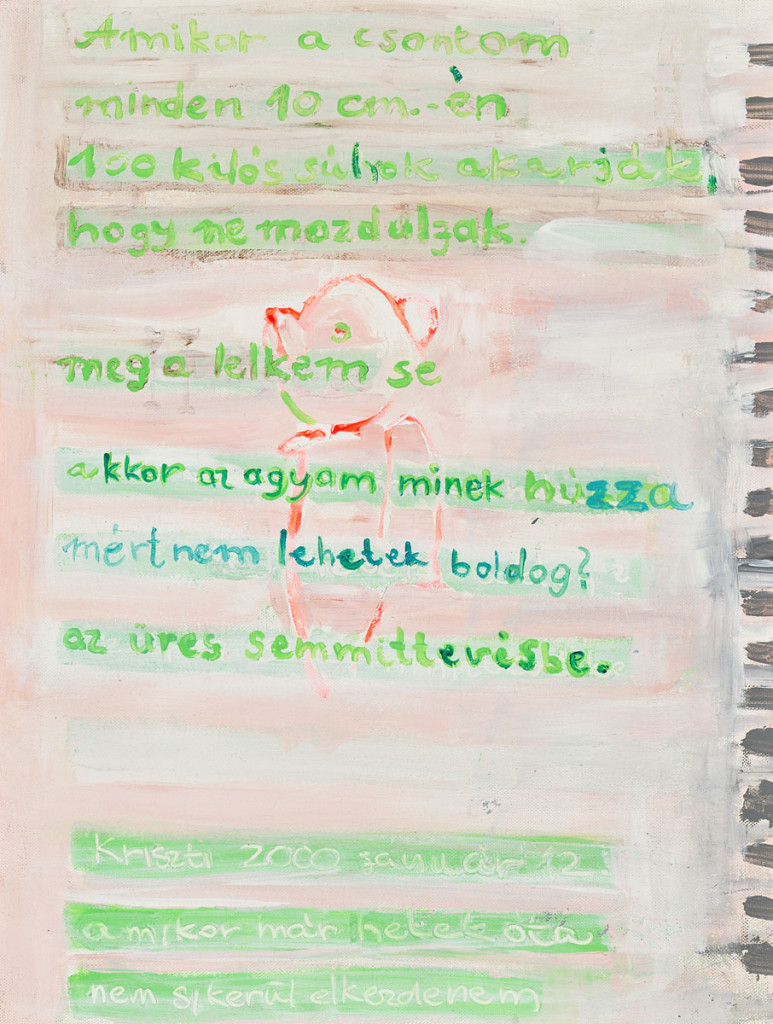 Amikor a csontom
minden 10 cm.-én
100 kilós súlyok akarják,
hogy ne mozduljak.
meg a lelkem se
akkor az agyam minek húzza
mért nem lehetek boldog?
az üres semmittevésbe.
Kriszti 2000 január 12
amikor már hetek óta
nem sikerül elkezdenem